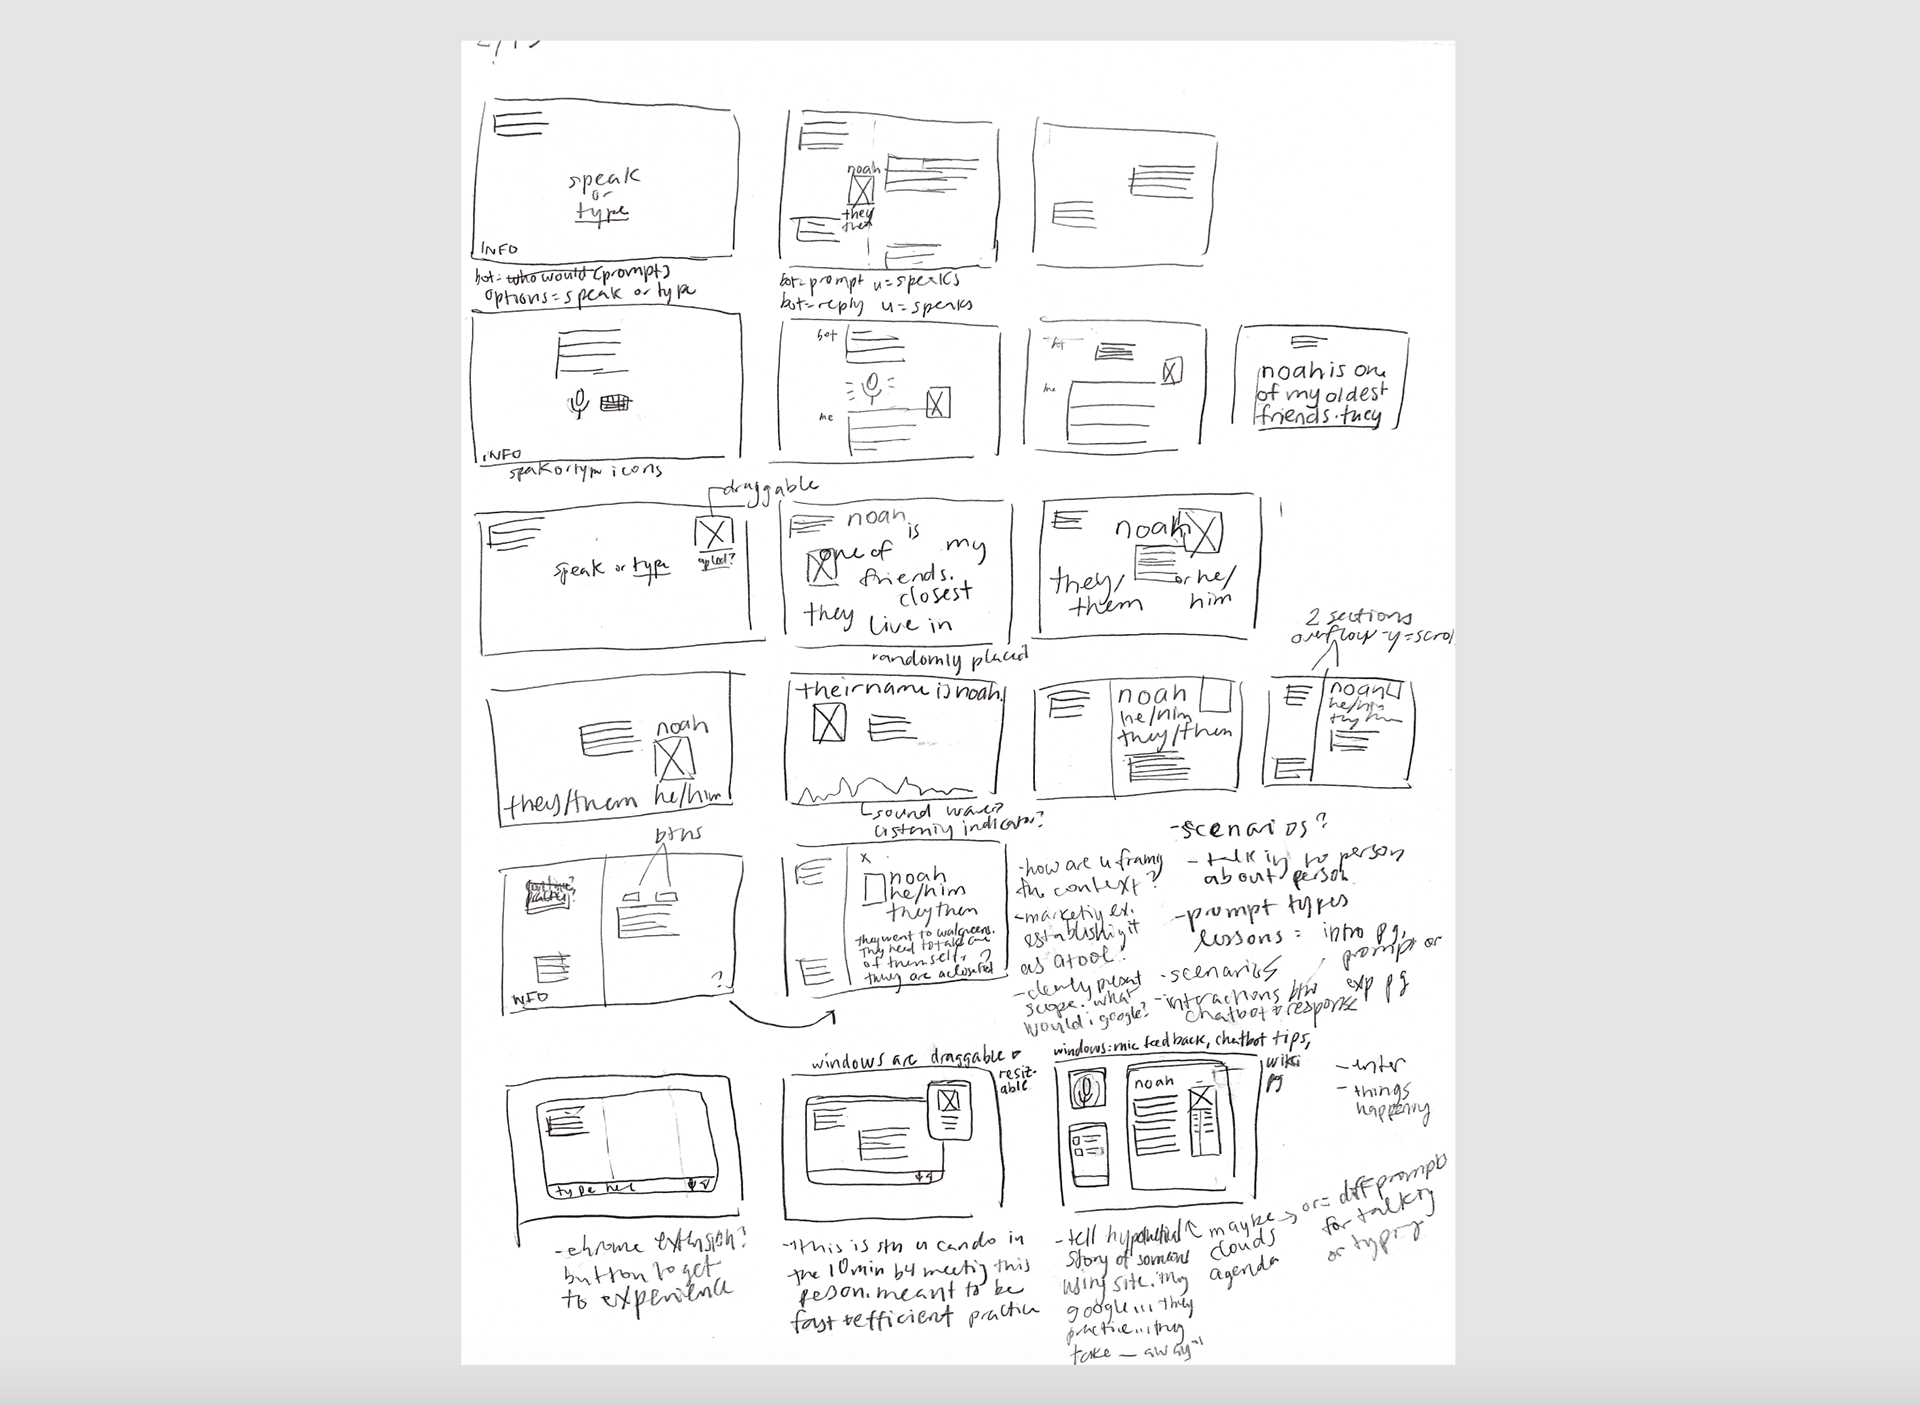 speak
or
type
INFO
bot= who would (prompt)
options= speak or type
noah
they
bot=prompt u=speaks
bot=reply u=speaks
INFO
speak or type icons
bot
me
bot
me
noah is one
of my oldest
friends. they
draggable
speak or type
upload?
noah is
one of my
friends.
closest
they live in
randomly placed
noah
they/ or he/
them him
2 sections
overflow-y=scroll
noah
they/them he/him
their name is noah.
sound wave?
listening indicator?
noah
he/him
they/them
noah
he/him
they/them
btns
INFO
?
x
noah
he/him
they them
they went to walgreens.
They need to take care
of themself. ?
they are a close friend
-how are u framing
the context?
-marketing ex.
establishing it
as a tool.
-clearly present
scope. what
would i google?
-scenarios?
-talking to person
about person
-prompt types
lessons = intro pg,
prompts or
exp pg
-scenarios
-interactions btw
chatbot & response
type here
-chrome extension?
button to get
to experience
windows are draggable &
resiz-
able
-this is sth u can do in
the 10 min b4 meeting this
person. meant to be
fast & efficient practice
windows: mic feedback, chatbot tips,
wiki
pg
noah
-enter
-things
happening
-tell hypothetical
story of someone
using site. they
google... they
practice... they
take — away"
maybe
clouds
agenda
or= diff prompts
for talking
or typing